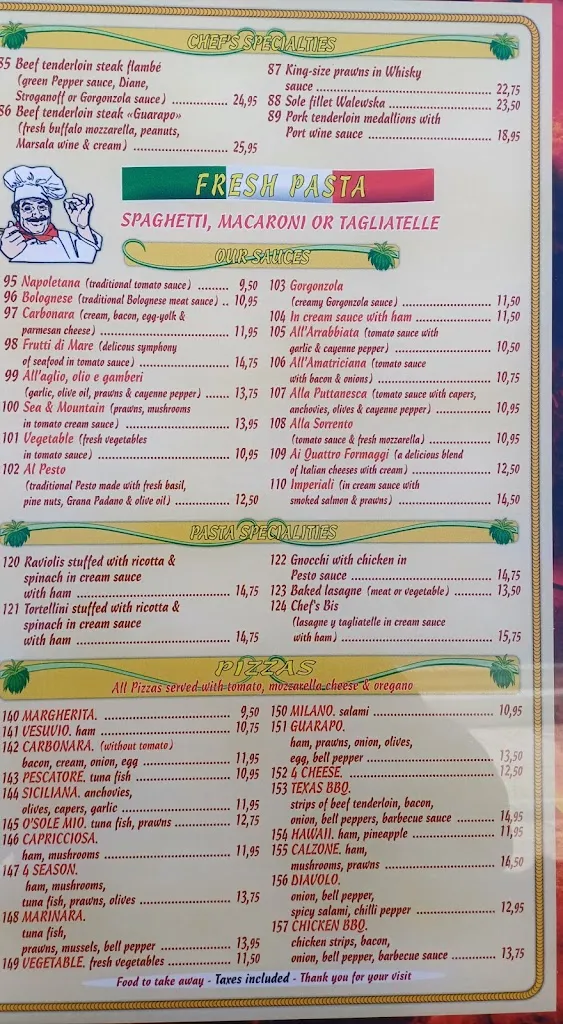 CHEF'S SPECIALTIES
85 Beef tenderloin steak flambé
(green Pepper sauce, Diane,
Stroganoff or Gorgonzola sauce) 24,95
86 Beef tenderloin steak «Guarapo»
(fresh buffalo mozzarella, peanuts,
Marsala wine & cream) 25,95
87 King-size prawns in Whisky
sauce 22,75
88 Sole fillet Walewska 23,50
89 Pork tenderloin medallions with
Port wine sauce 18,95
FRESH PASTA
SPAGHETTI, MACARONI OR TAGLIATELLE
OUR SAUCES
95 Napoletana (traditional tomato sauce) 9,50
96 Bolognese (traditional Bolognese meat sauce) 10,95
97 Carbonara (cream, bacon, egg-yolk &
parmesan cheese) 11,95
98 Frutti di Mare (delicous symphony
of seafood in tomato sauce) 14,75
99 All'aglio, olio e gamberi
(garlic, olive oil, prawns & cayenne pepper) 13,75
100 Sea & Mountain (prawns, mushrooms
in tomato cream sauce) 13,95
101 Vegetable (fresh vegetables
in tomato sauce) 10,95
102 Al Pesto
(traditional Pesto made with fresh basil,
pine nuts, Grana Padano & olive oil) 12,50
103 Gorgonzola
(creamy Gorgonzola sauce) 11,50
104 In cream sauce with ham 11,50
105 All'Arrabbiata (tomato sauce with
garlic & cayenne pepper) 10,50
106 All'Amatriciana (tomato sauce
with bacon & onions) 10,75
107 Alla Puttanesca (tomato sauce with capers,
anchovies, olives & cayenne pepper) 10,95
108 Alla Sorrento
(tomato sauce & fresh mozzarella) 10,95
109 Ai Quattro Formaggi (a delicious blend
of Italian cheeses with cream) 12,50
110 Imperiali (in cream sauce with
smoked salmon & prawns) 14,50
PASTA SPECIALITIES
120 Raviolis stuffed with ricotta &
spinach in cream sauce
with ham 14,75
121 Tortellini stuffed with ricotta &
spinach in cream sauce
with ham 14,75
122 Gnocchi with chicken in
Pesto sauce 14,75
123 Baked lasagne (meat or vegetable) 13,50
124 Chef's Bis
(lasagne y tagliatelle in cream sauce
with ham) 15,75
PIZZAS
All Pizzas served with tomato, mozzarella cheese & oregano
140 MARGHERITA. 9,50
141 VESUVIO. ham 10,75
142 CARBONARA. (without tomato)
bacon, cream, onion, egg 11,95
143 PESCATORE. tuna fish 10,95
144 SICILIANA. anchovies,
olives, capers, garlic 11,95
145 O'SOLE MIO. tuna fish, prawns 12,75
146 CAPRICCIOSA.
ham, mushrooms 11,95
147 4 SEASON.
ham, mushrooms,
tuna fish, prawns, olives 13,75
148 MARINARA.
tuna fish,
prawns, mussels, bell pepper 13,95
149 VEGETABLE. fresh vegetables 11,50
150 MILANO. salami 10,95
151 GUARAPO.
ham, prawns, onion, olives,
egg, bell pepper 13,50
152 4 CHEESE. 12,50
153 TEXAS BBQ.
strips of beef tenderloin, bacon,
onion, bell peppers, barbecue sauce 14,95
154 HAWAII. ham, pineapple 11,95
155 CALZONE. ham,
mushrooms, prawns 14,50
156 DIAVOLO.
onion, bell pepper,
spicy salami, chilli pepper 12,95
157 CHICKEN BBQ.
chicken strips, bacon,
onion, bell pepper, barbecue sauce 13,75
Food to take away - Taxes included - Thank you for your visit